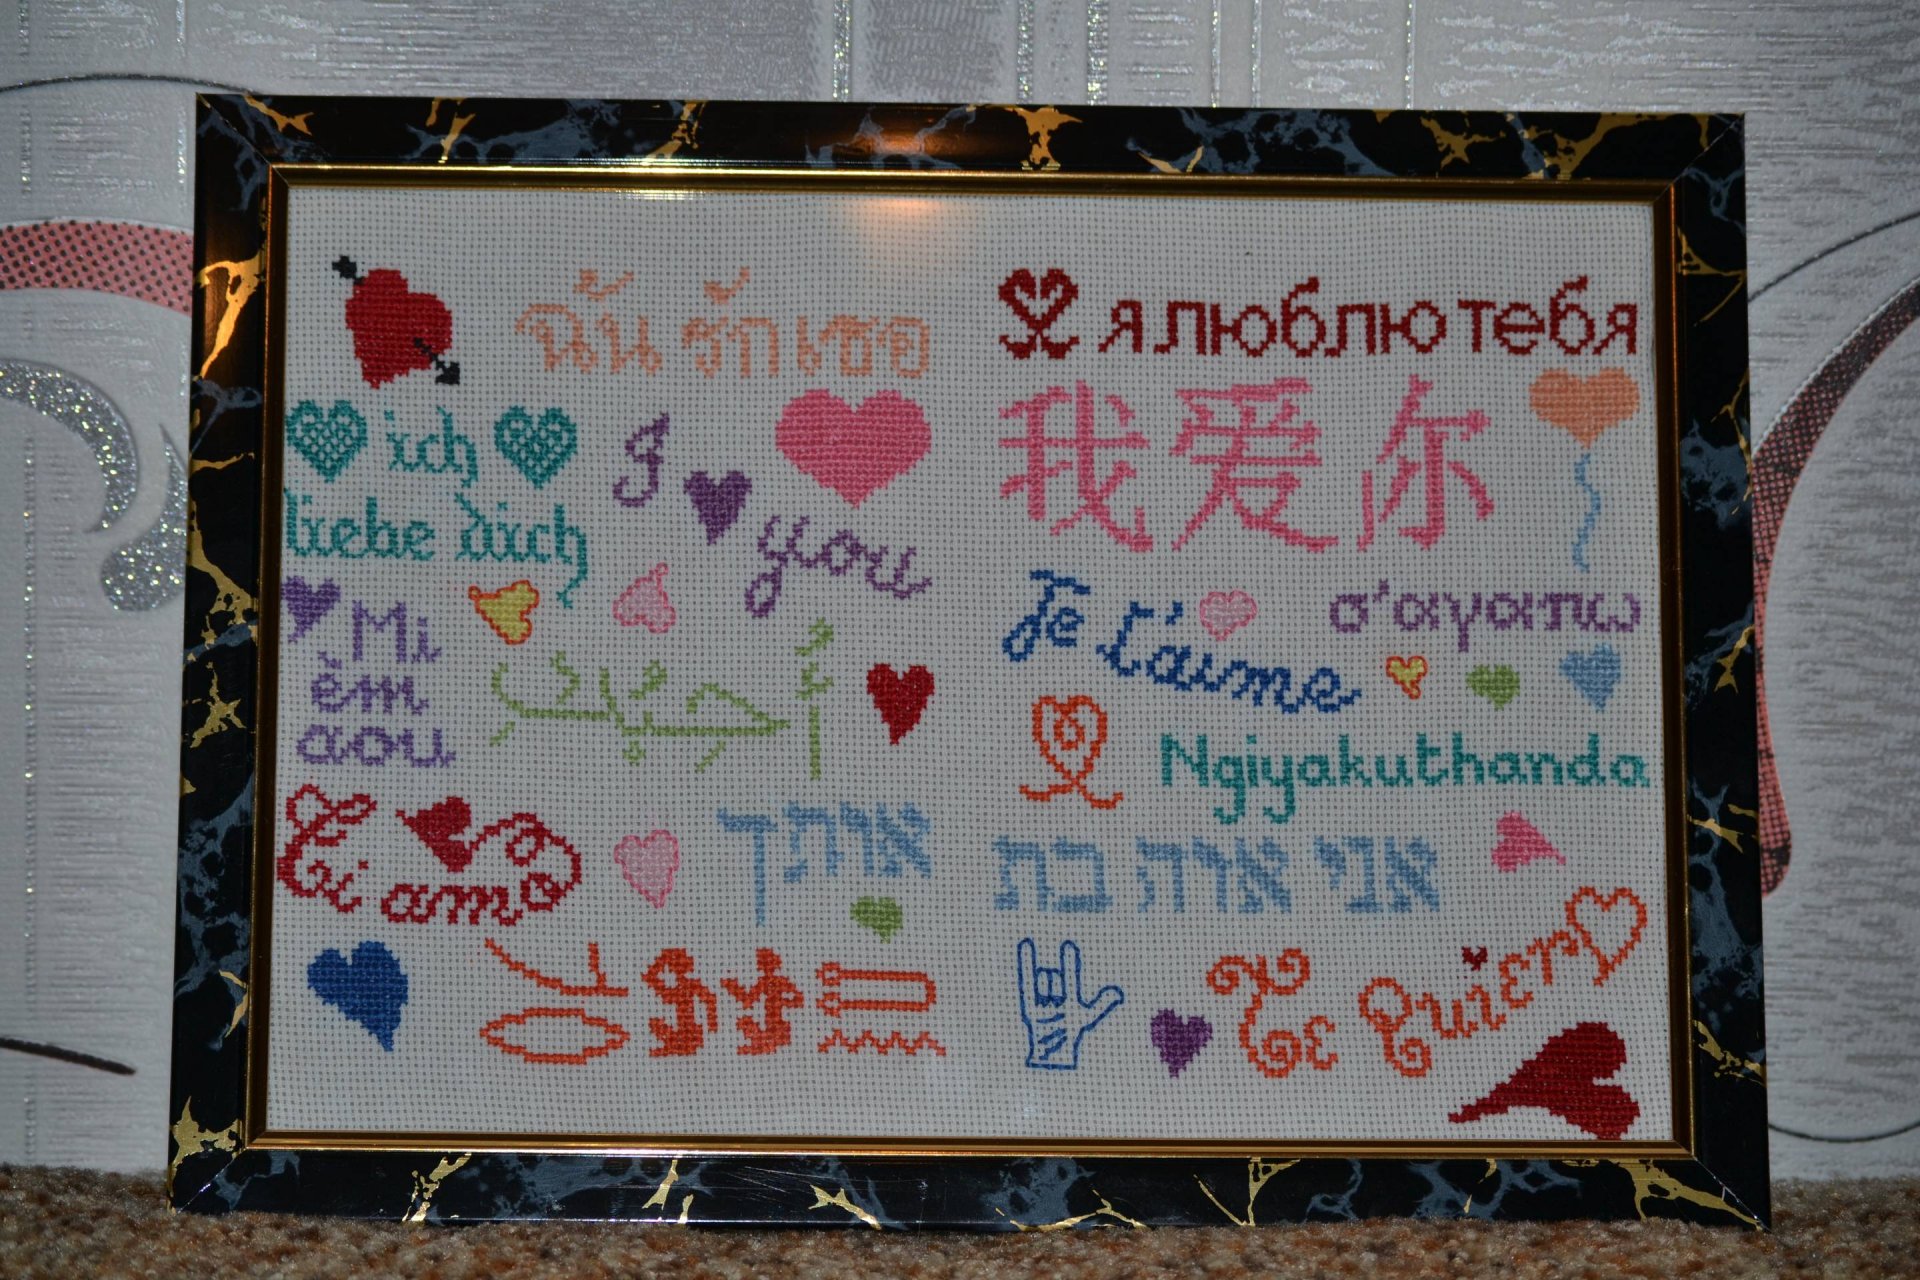 ฉั้น รักเธอ
я люблю тебя
ich
liebe dich
I
you
我爱你
Mi
èm
aou
أُحِبُّكِ
Je t'aime
σ'αγαπω
Ngiyakuthanda
Ti amo
אני אוה בת
אותך
Te Quiero